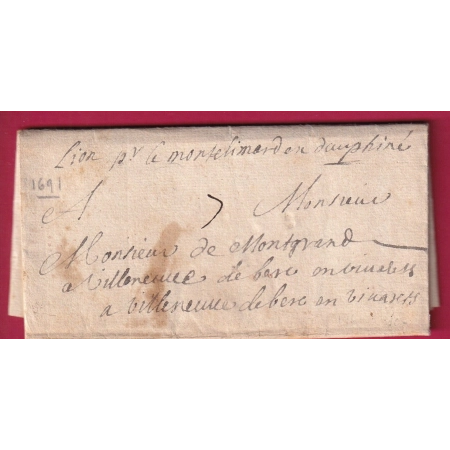 Lion pr le montelimard en dauphiné
1691
A 7 Monsieur
Monsieur de Montgrand
a Villeneuve de berc en vivarés
a villeneuve de berc en vivarés